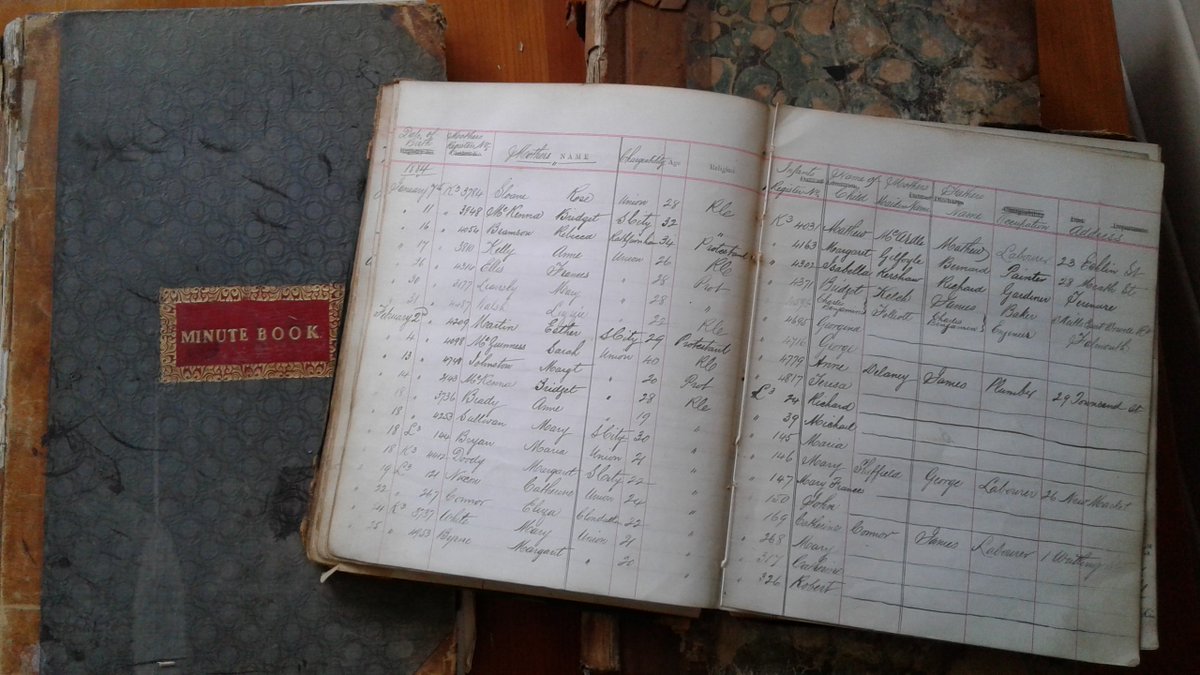 MINUTE BOOK.
Date of Birth Mothers Register No. Mothers NAME Chargeability Age Religion
1884
January 7th K3 3784 Sloane Rose Union 28 RC
" 11 " 3948 McKenna Bridget S City 32 "
" 16 " 4054 Bramson Rebecca 34 Protestant
" 17 " 3810 Kelly Anne Union 26 RC
" 26 " 4314 Ellis Frances " 28 Prot
" 30 " 3177 Mary " 28 "
" 31 " 4087 Walsh Lizzie " 22 RC
February 2d " 4209 Martin Esther S City 29 Protestant
" 4 " 4098 McGuinness Sarah Union 40 RC
" 13 " 4748 Johnston Margt " 20 Prot
" 14 " 243 McKenna Bridget " 28 RC
" 18 " 3736 Brady Anne " 19 "
" 18 " 4253 Sullivan Mary S City 30 "
" 18 L3 144 Bryan Maria Union 21 "
" 18 K3 4412 Doody Margaret S City 22 "
" 19 L3 121 Nixon Catherine Union 24 "
" 22 " 247 Connor Eliza 22 "
" 24 K3 3737 White Mary Union 21 "
" 25 " 4953 Byrne Margaret " 20 "
Infants Register No. Name of Child Mothers Maiden Name Fathers Name Occupation Address
K3 4031 Mathew McArdle Mathew Labourer 23 Dublin St
" 4163 Margaret Gilfoyle Bernard Painter 28 Meath St
" 4302 Isabella Kershaw Richard Gardener Terenure
" 4371 Bridget Kelch James Baker
Charles Benjamin Folliott Charles Benjamin Falmouth
" 4695 Georgina
" 4716 George
" 4779 Anne Delaney James Plumber 29 Townsend St
" 4817 Teresa
L3 24 Richard
" 39 Michael
" 145 Maria
" 146 Mary George Labourer 26 New Market
" 147 Mary Frances
" 150 John
" 169 Catherine Connor James Labourer
" 268 Mary
" 317 Catherine
" 326 Robert